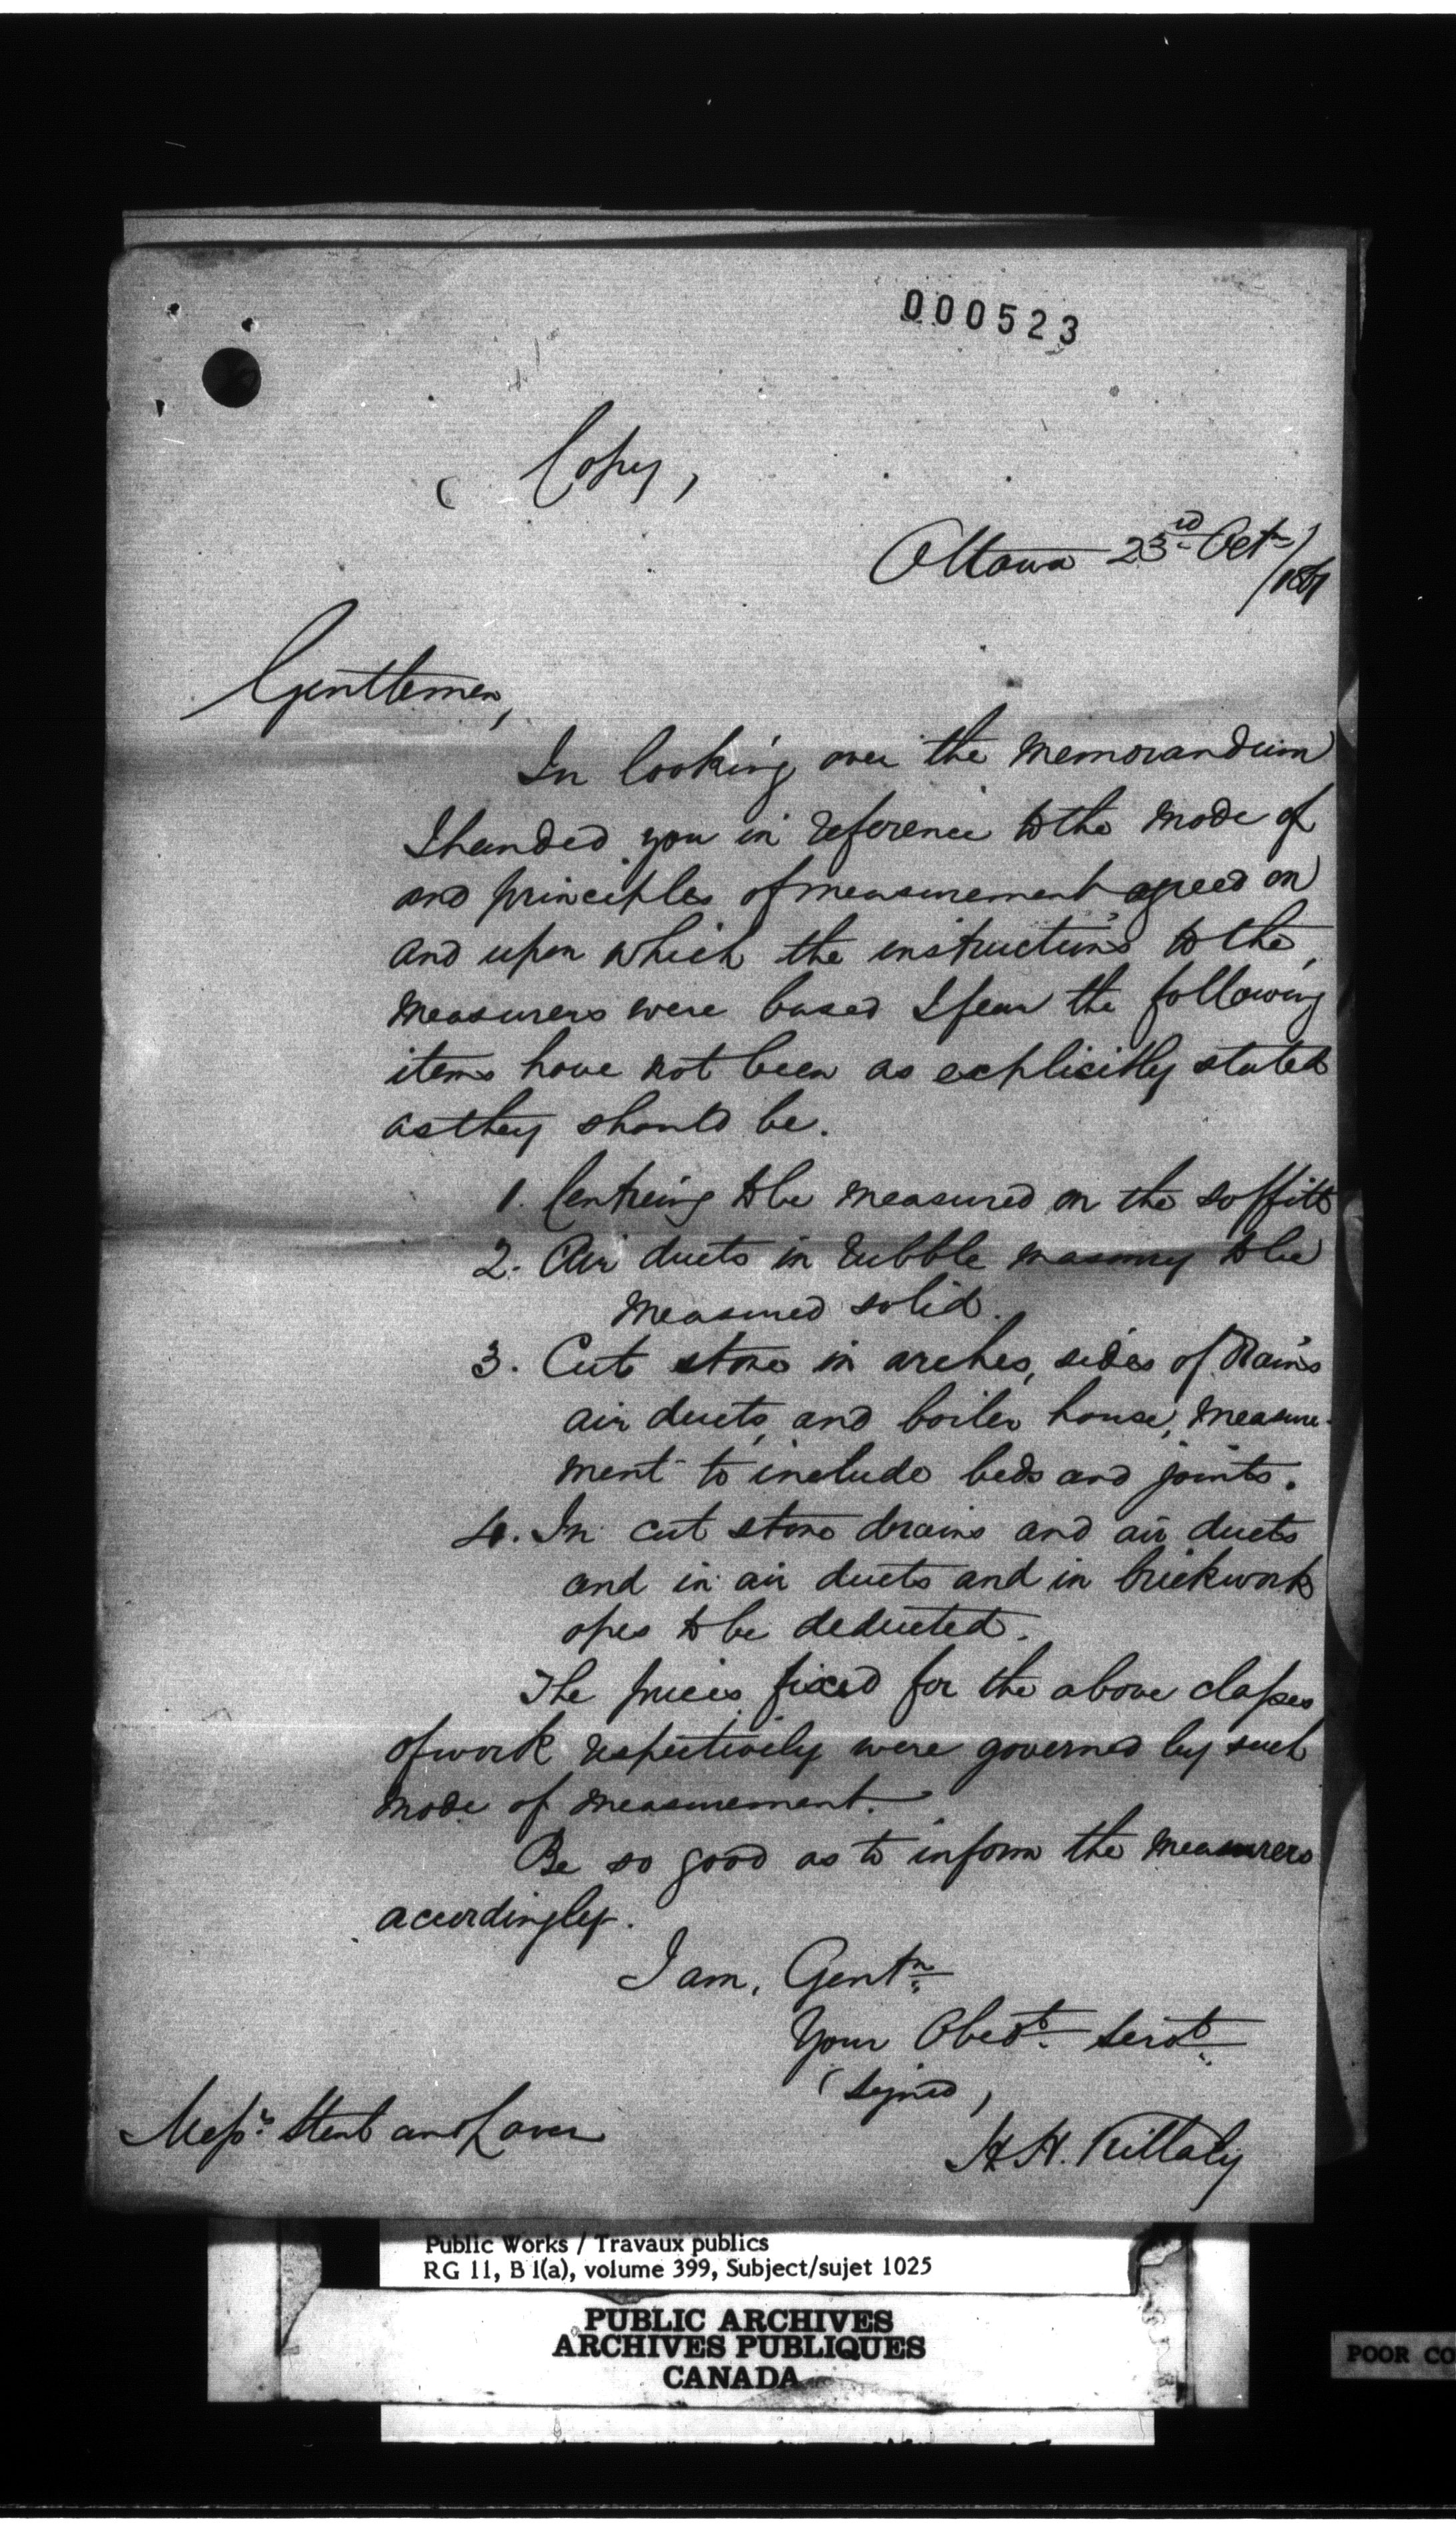 000523
( Copy,
Ottawa 23rd Octr / 1861
Gentlemen,
In looking over the memorandum
I handed you in reference to the mode of
and principles of measurement agreed on
and upon which the instructions to the
measurers were based I fear the following
items have not been as explicitly stated
as they should be.
1. Centreing to be measured on the soffitt
2. Air ducts in rubble masonry to be
measured solid.
3. Cut stone in arches, sides of drains
air ducts, and boiler house, measure-
ment to include beds and joints.
4. In cut stone drains and air ducts
and in air ducts and in brickwork
opes to be deducted.
The prices fixed for the above classes
of work respectively were governed by such
mode of measurement.
Be so good as to inform the measurers
accordingly.
I am, Gentn
Your Obedt. Servt.
(signed,
H.H. Killaly
Messrs. Stent and Laver
Public Works / Travaux publics
RG 11, B 1(a), volume 399, Subject/sujet 1025
PUBLIC ARCHIVES
ARCHIVES PUBLIQUES
CANADA
POOR CO